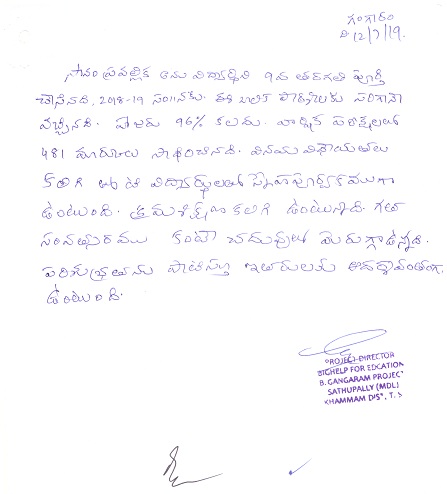 గంగారం
ది 12/7/19.
సాదం ప్రవల్లిక అను విద్యార్థిని 9వ తరగతి పూర్తి
చేసినది. 2018-19 సం॥నకు. ఈ బాలిక పాఠశాలకు సరిగానే
వచ్చినది. హాజరు 96% కలదు. వార్షిక పరీక్షలలో
481 మార్కులు సాధించినది. వినయ విధేయతలు
కలిగి తోటి విద్యార్థులతో స్నేహపూర్వకముగా
ఉంటుంది. క్రమశిక్షణ కలిగి ఉంటున్నది. గత
సంవత్సరము కంటే చదువులో మెరుగ్గా ఉన్నది.
పరిశుభ్రతను పాటిస్తూ ఇతరులకు ఆదర్శవంతంగా
ఉంటుంది.
PROJECT DIRECTOR
BIGHELP FOR EDCATION
B. GANGARAM PROJEC
SATHUPALLY (MDL)
KHAMMAM DIST, T.S